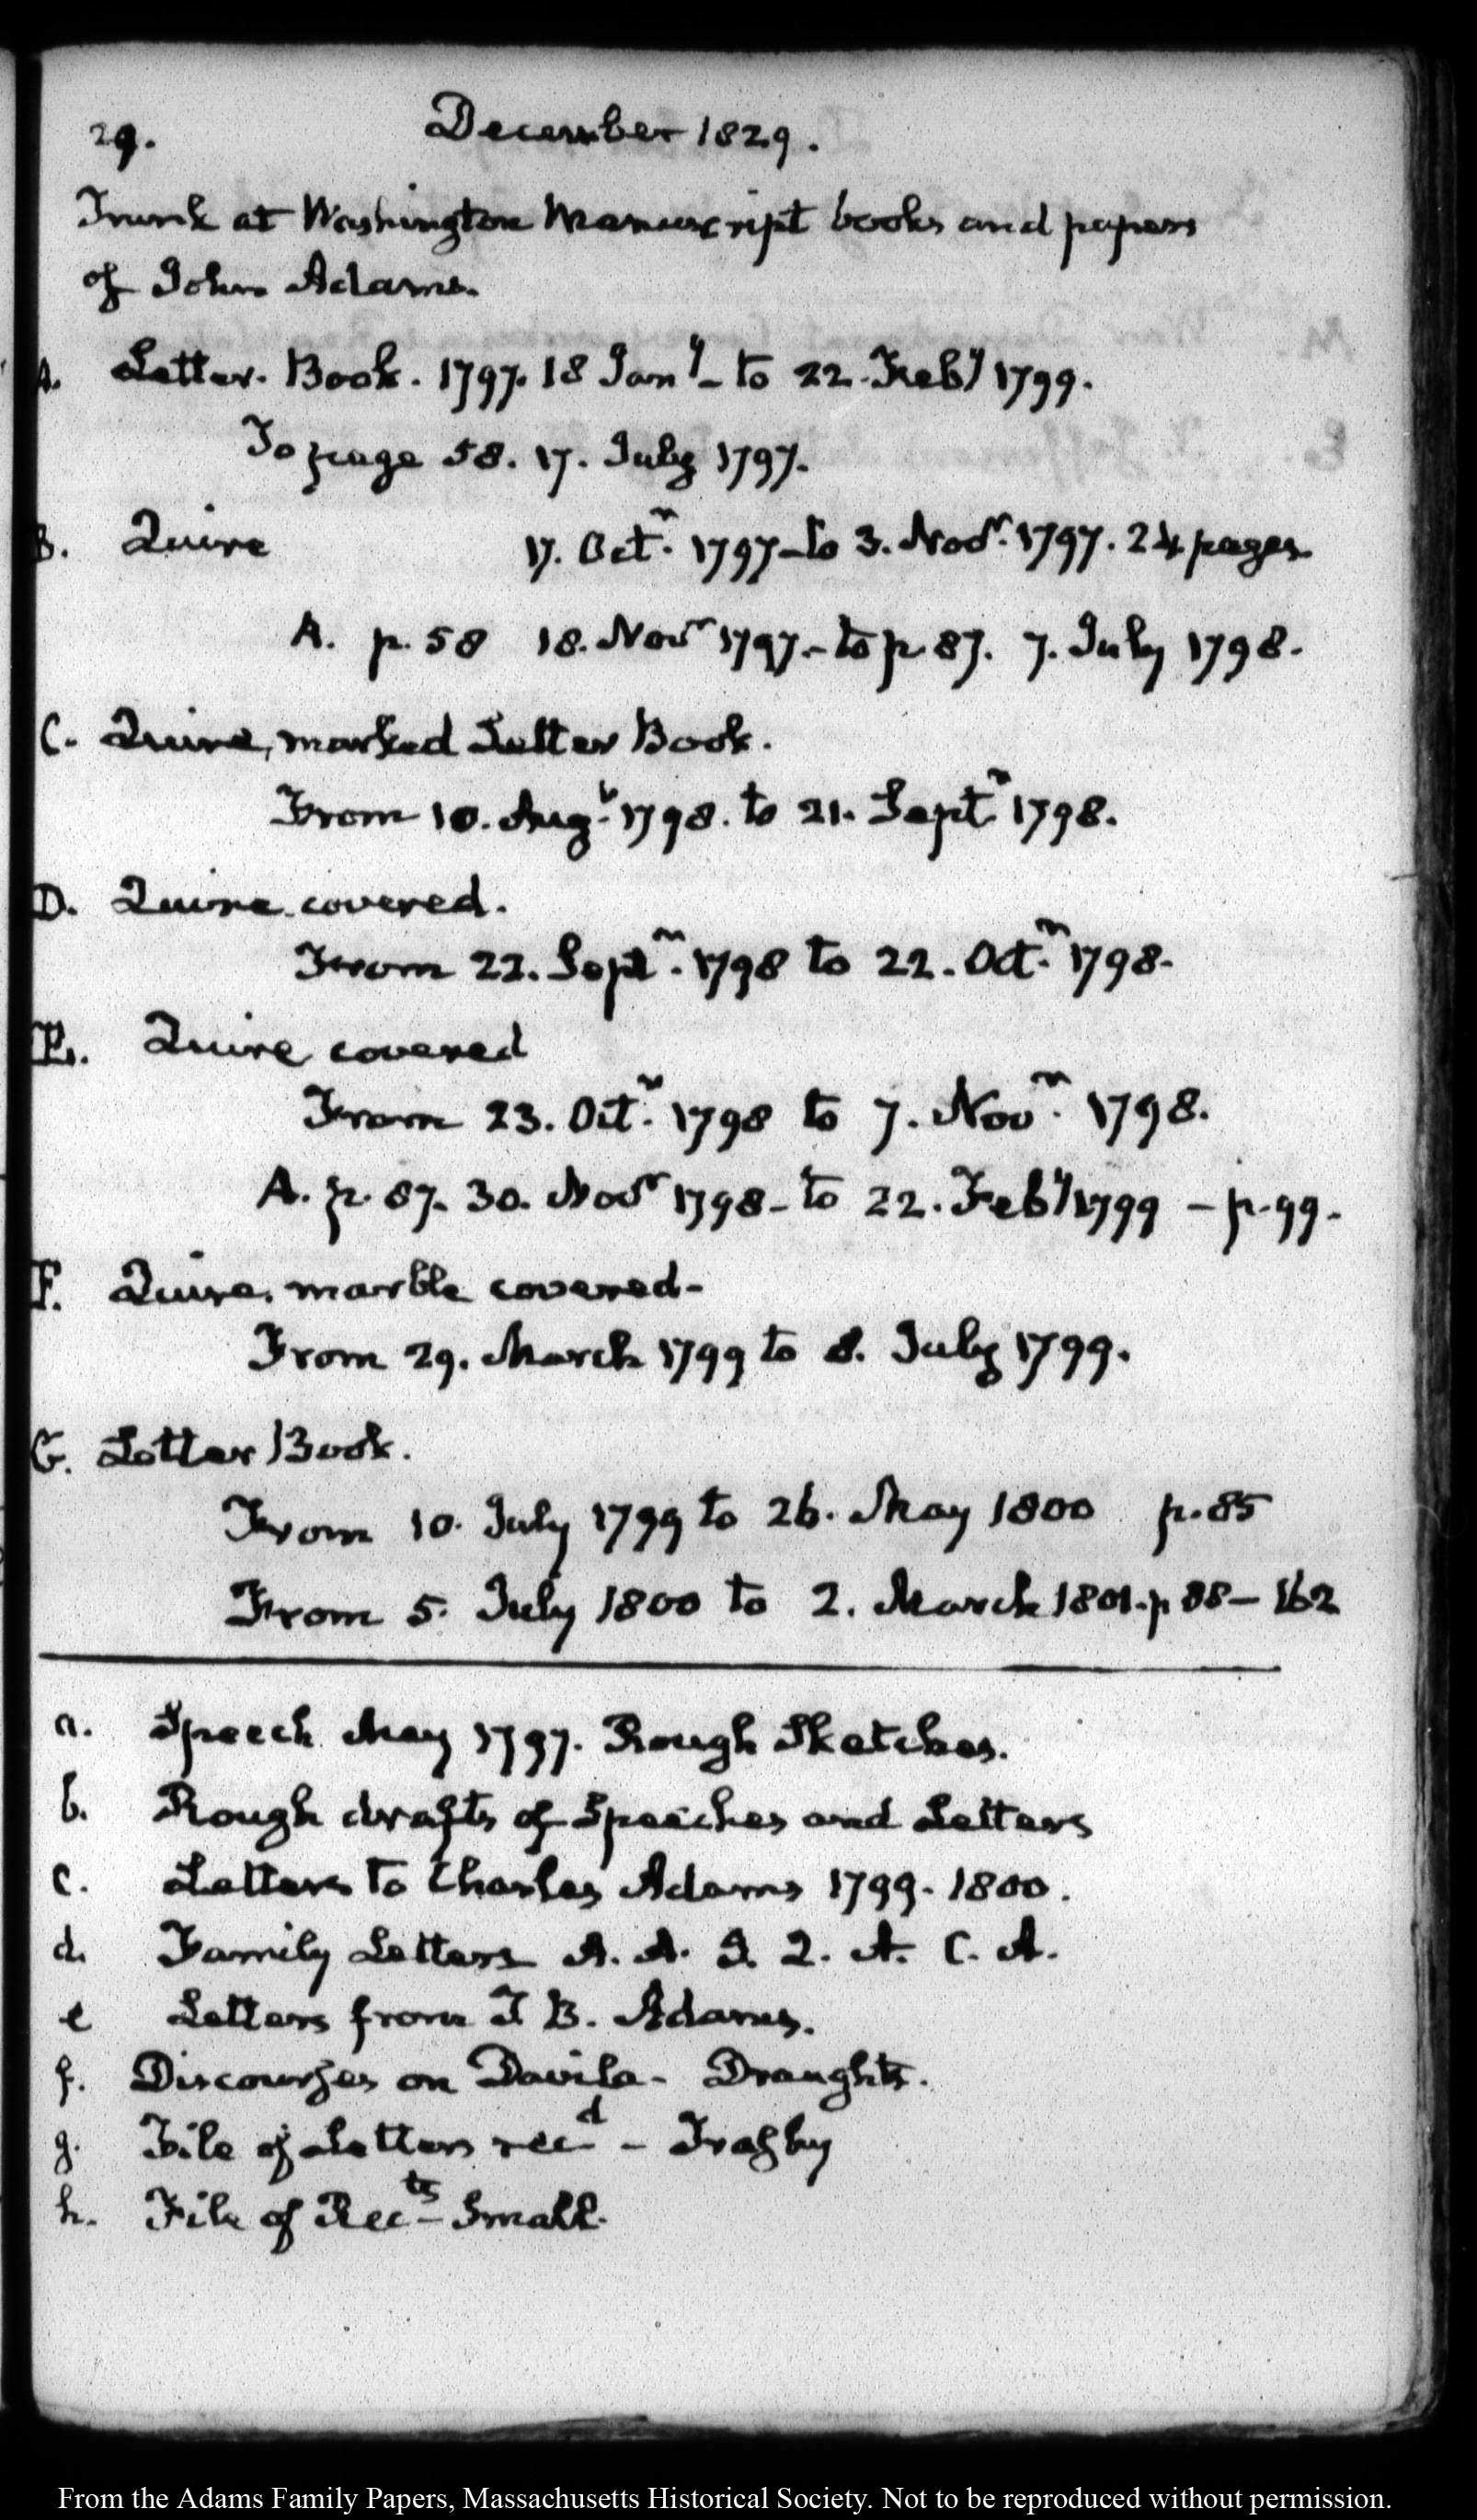 29. December 1829.
Trunk at Washington Manuscript books and papers
of John Adams.
A. Letter. Book. 1797. 18 Jany- to 22. Feby 1799.
To page 58. 17. July 1797.
B. Quire 17. Octr. 1797-to 3. Novr. 1797. 24 pages
A. p. 58 18. Novr 1797.-to p. 87. 7. July 1798.
C. Quire, marked Letter Book.
From 10. Augt. 1798. to 21. Septr 1798.
D. Quire covered.
From 22. Septr. 1798 to 22. Octr. 1798.
E. Quire covered
From 23. Octr. 1798 to 7. Novr. 1798.
A. p. 87. 30. Novr 1798- to 22. Feby 1799 - p. 99.
F. Quire, marble covered-
From 29. March 1799 to 8. July 1799.
G. Letter Book.
From 10. July 1799 to 26. May 1800 p. 85
From 5. July 1800 to 2. March 1801. p 88-162
a. Speech May 1797. Rough Sketches.
b. Rough drafts of Speeches and Letters
c. Letters to Charles Adams 1799. 1800.
d. Family Letters A. A. J. Q. A. C. A.
e Letters from T B. Adams.
f. Discourses on Davila- Draughts.
g. File of Letters recd -
h. File of Rects- Small.
From the Adams Family Papers, Massachusetts Historical Society. Not to be reproduced without permission.